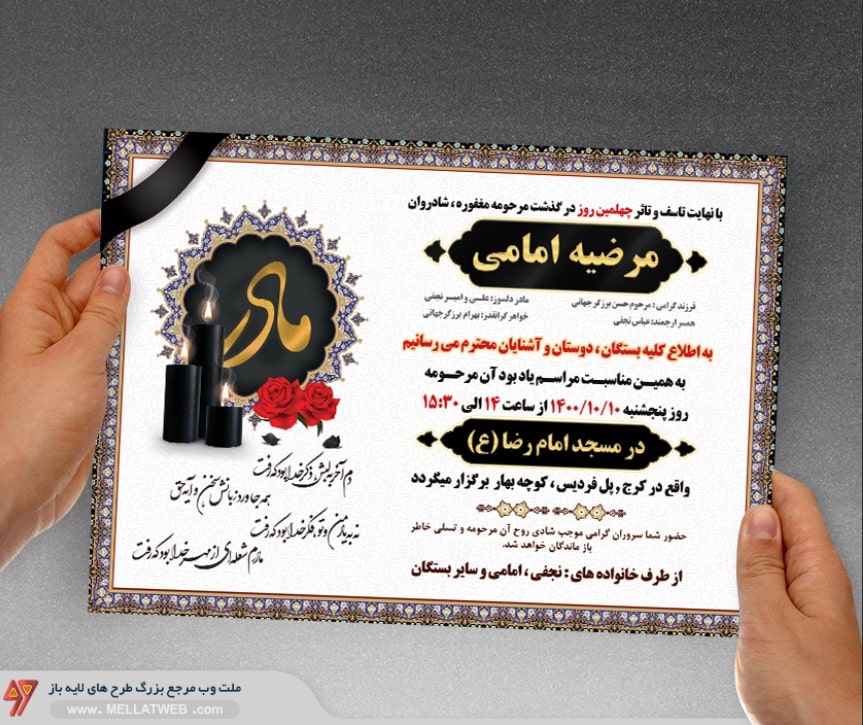 با نهایت تاسف و تاثر چهلمین روز درگذشت مرحومه مغفوره، شادروان
مرضیه امامی
فرزند گرامی: مرحوم حسن برزگر جهانی
مادر دلسوز: علی و امیر نجفی
همسر ارجمند: عباس نجفی
خواهر گرانقدر: بهرام برزگر جهانی
به اطلاع کلیه بستگان، دوستان و آشنایان محترم می رسانیم
به همین مناسبت مراسم یادبود آن مرحومه
روز پنجشنبه ۱۴۰۰/۱۰/۱۰ از ساعت ۱۴ الی ۱۵:۳۰
در مسجد امام رضا (ع)
واقع در کرج, پل فردیس، کوچه بهار برگزار میگردد
حضور شما سروران گرامی موجب شادی روح آن مرحومه و تسلی خاطر
باز ماندگان خواهد شد.
از طرف خانواده های: نجفی، امامی و سایر بستگان
مادر
دم آخر به لبش ذکر خدا بود که رفت
همه جا ورد زبانش سخن و آیه حق
نه به یاد من و تو، فکر خدا بود که رفت
مادرم شعله ای از مهر خدا بود که رفت
ملت وب مرجع بزرگ طرح های لایه باز
www. MELLATWEB .com